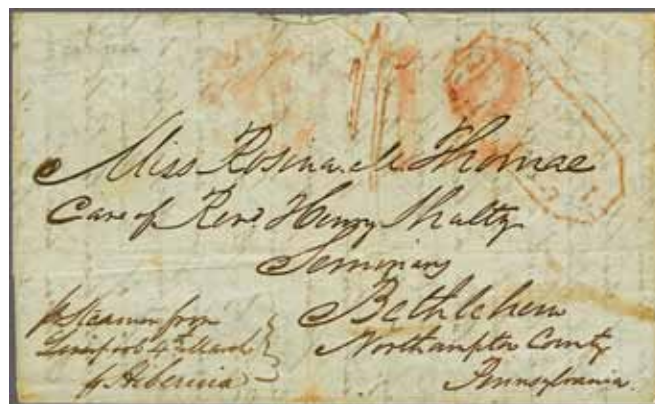 Miss Rosina de Thomae
Care of Revd. Henry Shultz
Seminary
Bethlehem
Northampton County
Pennsylvania.
pr Steamer from
Liverpool 4th March
pr Hibernia
12